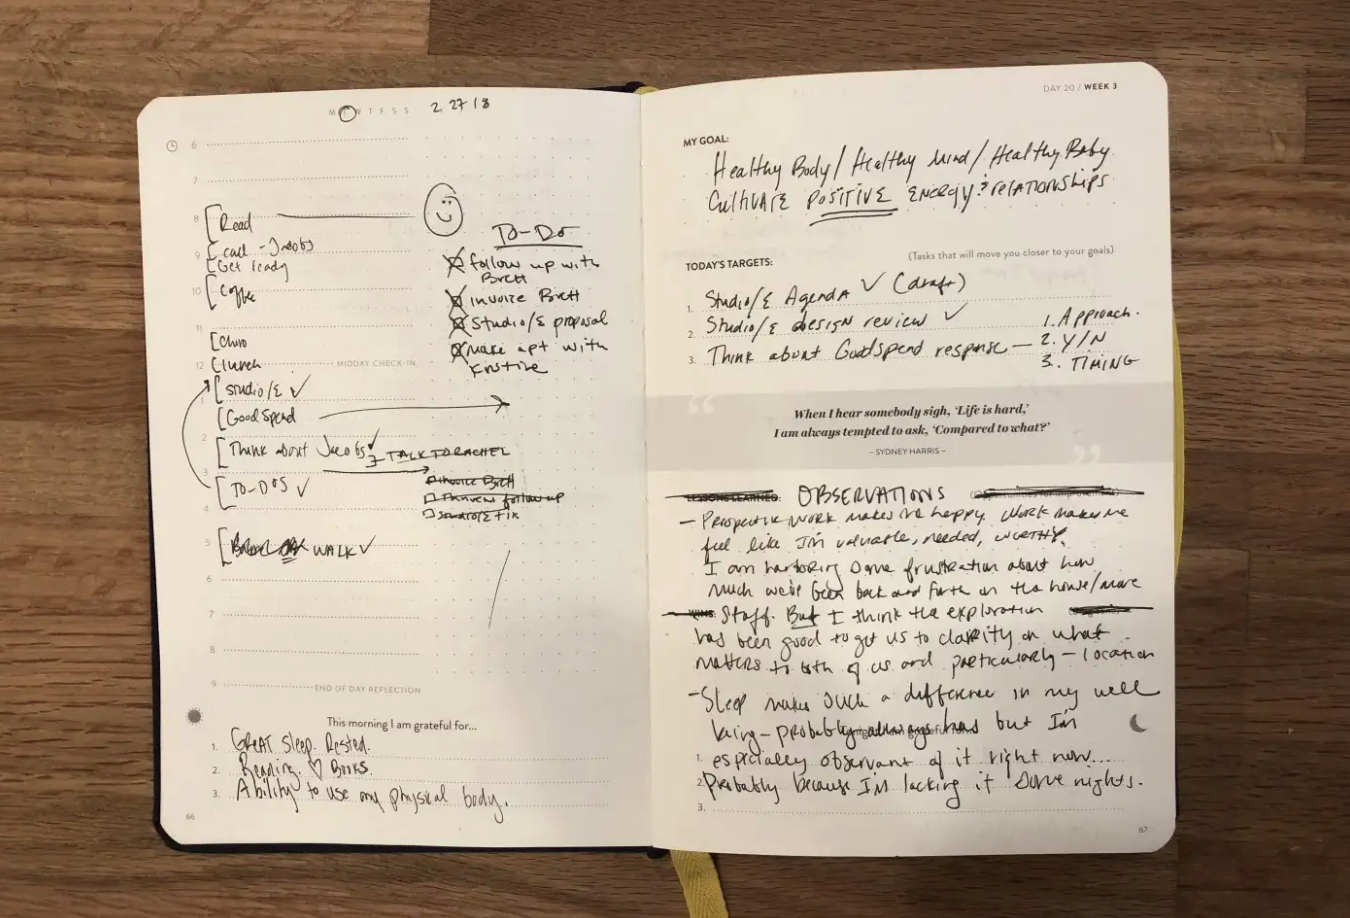 M T W T F S S 2 27 18
6
7
8 Read
call - Jacobs
9 Get ready
10 Coffee
11
Chiro
12 Lunch MIDDAY CHECK-IN
Studio/E ✓
GoodSpend
2
Think about Jacobs ✓
TALK TO RACHEL
3
TO-DOS ✓
Invoice Brett
follow up
4 Studio/E fix
5 WALK ✓
6
7
8
9 END OF DAY REFLECTION
To-Do
follow up with
Brett
invoice Brett
Studio/E proposal
make apt with
Kristine
This morning I am grateful for...
1. GREAT Sleep. Rested.
2. Reading. ♡ Books.
3. Ability to use my physical body.
66
DAY 20 / WEEK 3
MY GOAL:
Healthy Body / Healthy Mind / Healthy Baby
CULTIVATE POSITIVE ENERGY & RELATIONSHIPS
TODAY'S TARGETS: (Tasks that will move you closer to your goals)
1. Studio/E AgendA ✓ (draft)
2. Studio/E design review ✓
3. Think about GoodSpend response —
1. Approach.
2. Y/N
3. TIMING
When I hear somebody sigh, 'Life is hard,'
I am always tempted to ask, 'Compared to what?'
– SYDNEY HARRIS –
LESSONS LEARNED OBSERVATIONS
– work makes me happy. Work makes me
feel like I'm valuable, needed, worthy.
I am harboring some frustration about how
much we've been back and forth on the house/move
WINS Stuff. But I think the exploration
has been good to get us to clarity on what
matters to both of us and particularly – location
– Sleep makes such a difference in my well
being – probably always has but I'm
1. especially observant of it right now...
2. Probably because I'm lacking it some nights.
3.
67